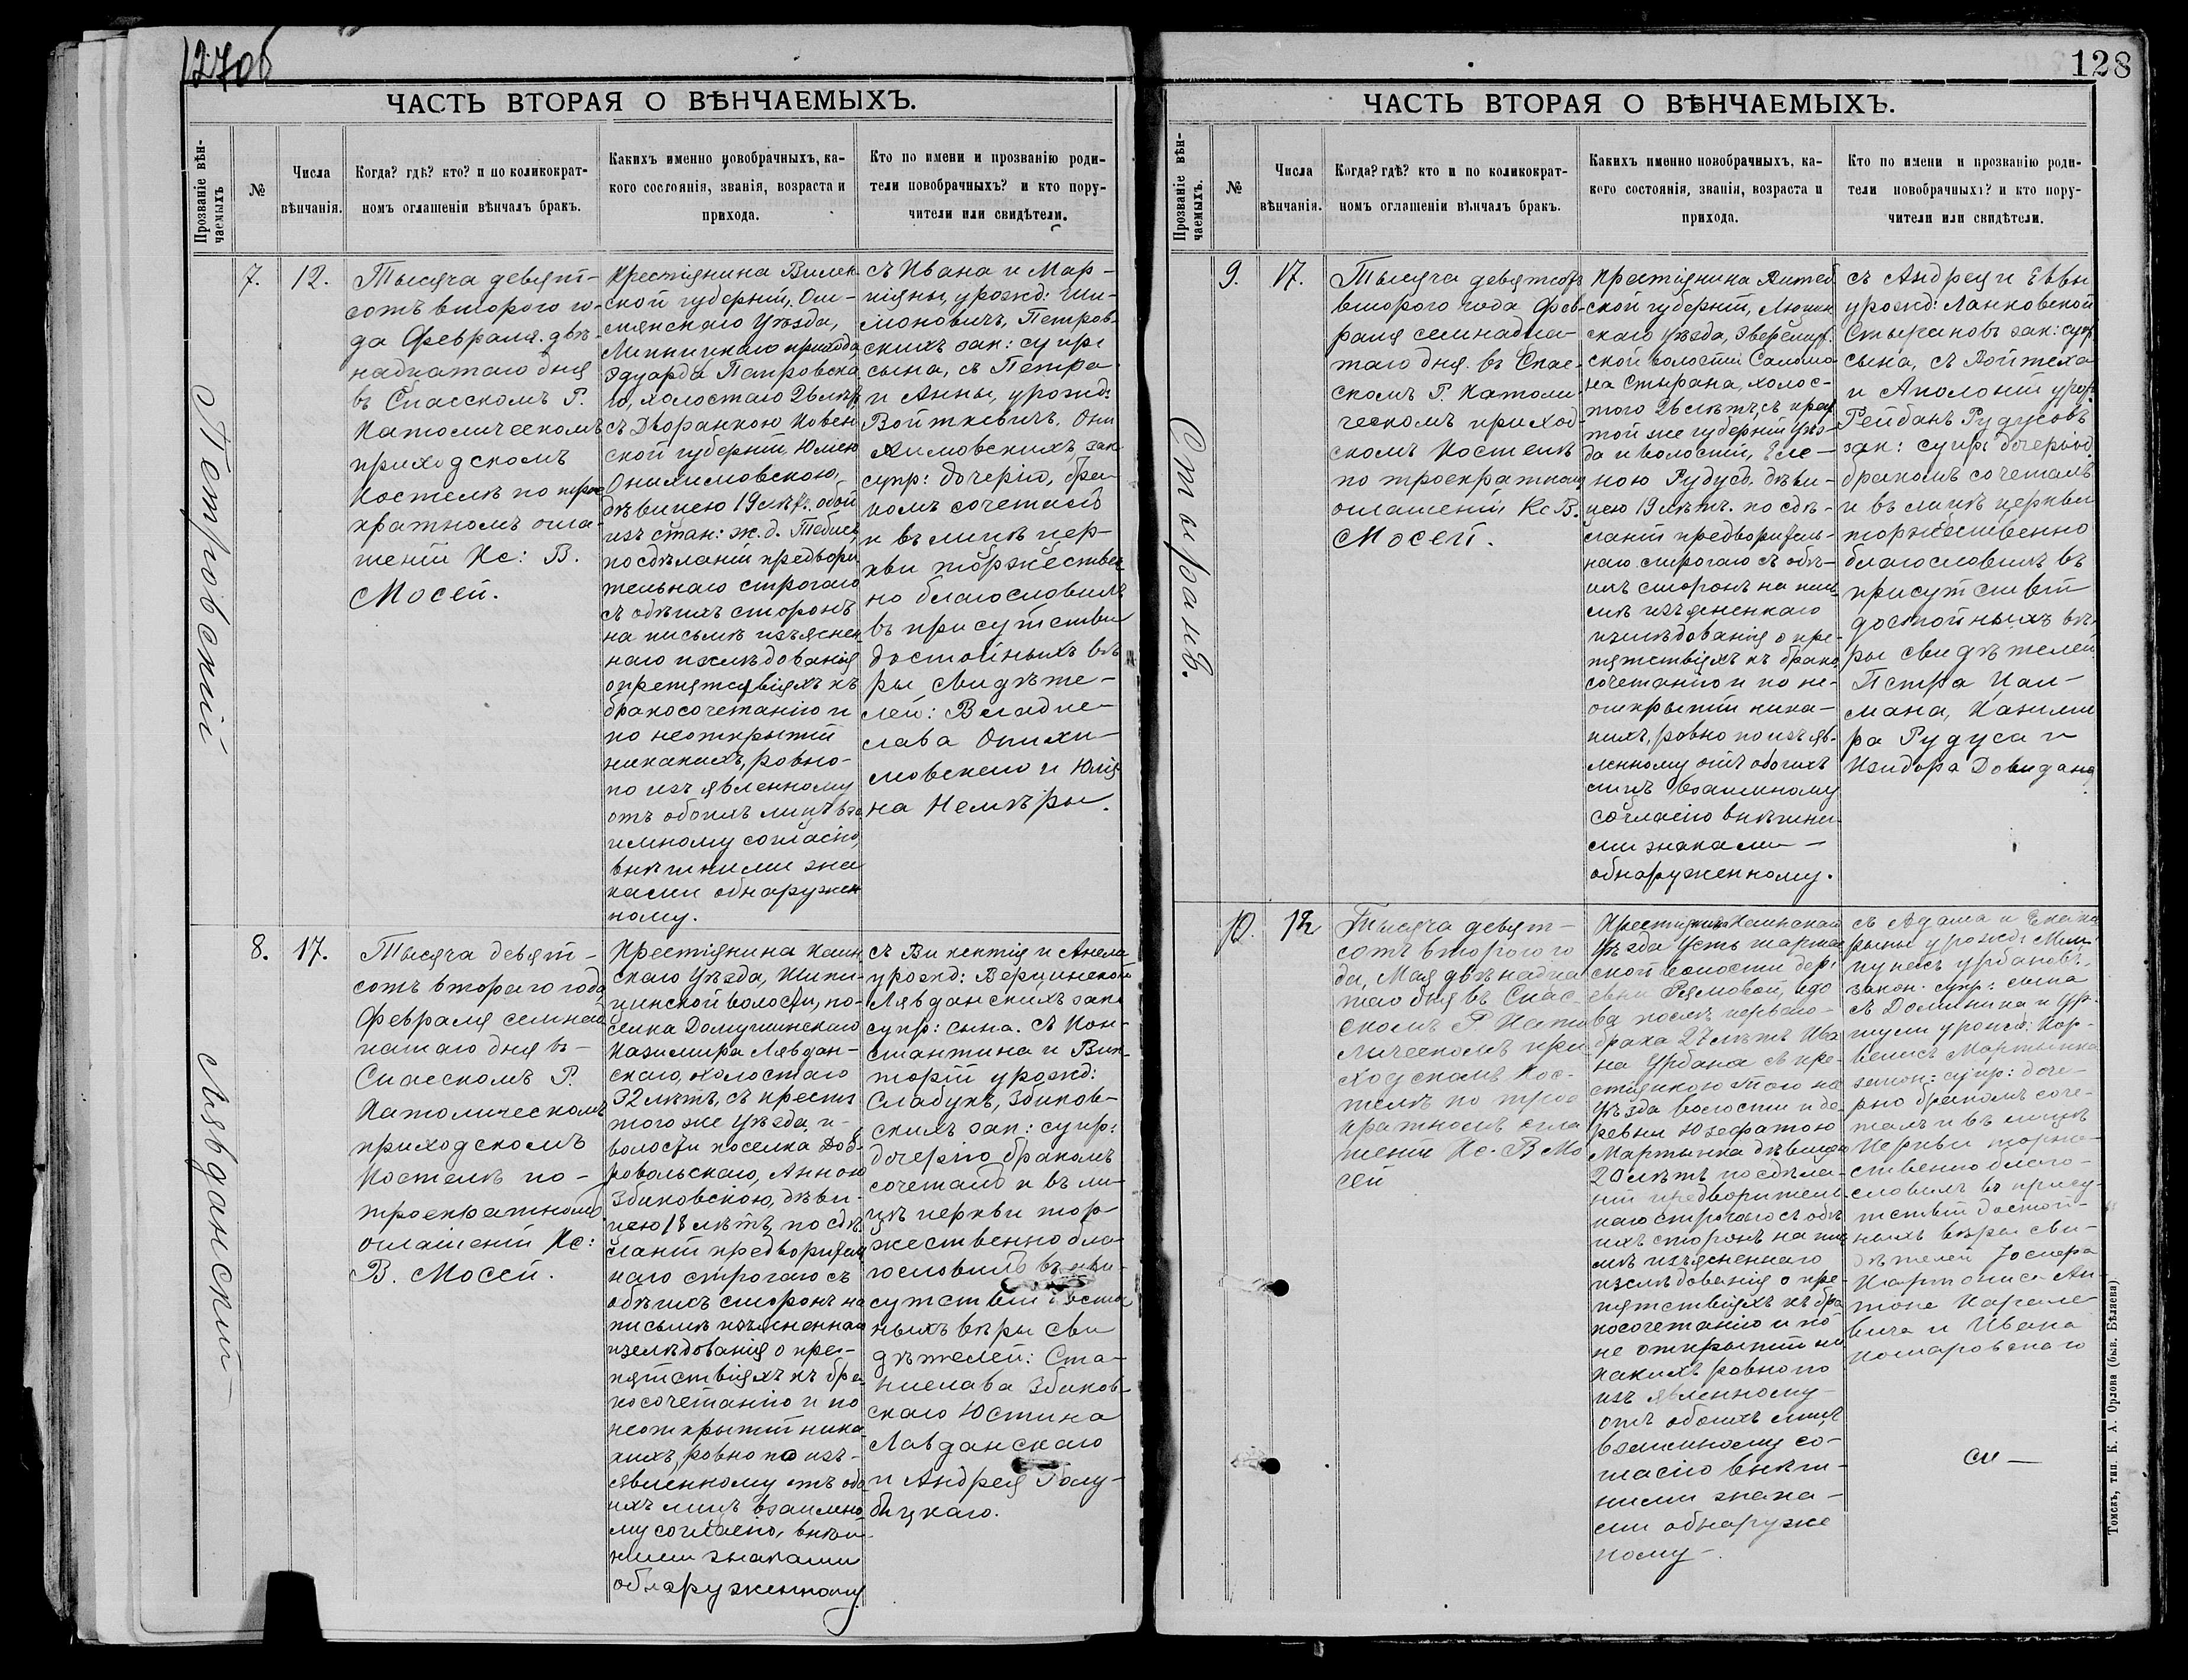 127об
ЧАСТЬ ВТОРАЯ О ВѢНЧАЕМЫХЪ.
Прозваніе вѣн-
чаемыхъ
№
Числа
вѣнчанія.
Когда? гдѣ? кто? и по коликократ-
номъ оглашеніи вѣнчалъ бракъ.
Какихъ именно новобрачныхъ, ка-
кого состоянія, званія, возраста и
прихода.
Кто по имени и прозванію роди-
тели новобрачныхъ? и кто пору-
чители или свидѣтели.
Петровскій
7.
12.
Тысяча девят-
сотъ второго го-
да Февраля двѣ-
надцатаго дня
въ Спасскомъ Р.
Католическомъ
приходскомъ
Костелѣ по трое
кратномъ огла-
шеніи Кс: В.
Мосей.
Крестіянина Вилен
ской губерніи, Ош-
мянскаго уѣзда,
прихода
Эдуарда Петровска
го, холостаго 26 лѣтъ
съ Дворянкою Ковен
ской губерніи Юлію
Онихимовскою,
дѣвицею 19 лѣтъ, обой
изъ стан: ж. д.
по сдѣланіи предвори
тельнаго строгаго
съ обѣихъ сторонъ
на письмѣ изъяснен
наго изслѣдованія
о препятствіяхъ къ
бракосочетанію и
по неоткрытіи
никакихъ, ровно-
по изъявленному
отъ обоихъ лицъ вза
имному согласію,
внѣшними зна
ками обнаружен
ному.
съ Ивана и Мар-
ціяны, урожд: Ши-
моновичъ, Петров
скихъ зак: супр:
сына, съ Петра
и Анны, урожд:
Войткевичъ, Они
химовскихъ зак
супр: дочерію, бра
комъ сочеталъ
и въ лицѣ цер-
кви торжествен
но благословилъ
въ присутствіи
достойныхъ вѣ
ры свидѣте-
лей: Владис-
лава Онихи-
мовскаго и Юлія
на Немѣры.
Лявданскій
8.
17.
Тысяча девят-
сотъ втораго года
Февраля семнад
цатаго дня въ-
Спасскомъ Р.
Католическомъ
приходскомъ
Костелѣ по-
троекратномъ
оглашеніи Кс:
В. Мосей.
Крестіянина Каин
скаго уѣзда,
волости, по-
селка
Казимира Лявдан-
скаго, холостаго
32 лѣтъ, съ крест:
того же уѣзда и-
волости поселка Доб-
ровольскаго, Анною
Збиковскою, дѣви-
цею 18 лѣтъ, по сдѣ
ланіи предворитель
наго строгаго съ
обѣихъ сторонъ на
письмѣ изъясненнаго
изслѣдованія о пре-
пятствіяхъ къ бра
косочетанію и по
неоткрытіи ника
кихъ, ровно по изъ-
явленному отъ обо
ихъ лицъ взаимно
му согласію, внѣш-
ними знаками
обнаруженному
съ Викентія и
урожд:
Лявданскихъ зак:
супр: сына. съ Кон-
стантина и Вик-
торіи урожд:
Слабукъ, Збиков-
скихъ зак: супр:
дочерію бракомъ
сочеталъ и въ ли-
цѣ церкви тор-
жественно бла-
гословилъ въ при-
сутствіи достой
ныхъ вѣры сви
дѣтелей: Ста-
нислава Збиков-
скаго Юстина
Лявданскаго
и Андрея Голу-
бицкаго.
128
ЧАСТЬ ВТОРАЯ О ВѢНЧАЕМЫХЪ.
Прозваніе вѣн-
чаемыхъ.
№
Числа
вѣнчанія.
Когда? гдѣ? кто и по коликократ-
номъ оглашеніи вѣнчалъ бракъ.
Какихъ именно новобрачныхъ, ка-
кого состоянія, званія, возраста и
прихода.
Кто по имени и прозванію роди-
тели новобрачныхъ? и кто пору-
чители или свидѣтели.
Стыранъ.
9.
17.
Тысяча девятсотъ
второго года Фев-
раля семнадца-
таго дня въ Спас-
скомъ Р. Католи
ческомъ приход-
скомъ Костелѣ
по троекратномъ
оглашеніи Кс. В.
Мосей.
Крестіянина Витеб
ской губерніи, Люцин
скаго уѣзда,
ской волости Саломо
на Стырана, холос-
того 26 лѣтъ, съ крест
той же губерніи уѣз-
да и волости, Еле-
ною Рудусъ, дѣви-
цею 19 лѣтъ. по сдѣ-
ланіи предворитель-
наго строгаго съ обѣ-
ихъ сторонъ на пись
мѣ изъясненнаго
изслѣдованія о пре-
пятствіяхъ къ брако
сочетанію и по не-
открытіи ника-
кихъ, ровно по изъяв-
ленному отъ обоихъ
лицъ взаимному
согласію внѣшни
ми знаками-
обнаруженному.
съ Андрея и Евы
урожд: Ланковской
Стырановъ зак: супр
сына, съ Войтеха
и Аполоніи урож:
Рейбанъ Рудусовъ
зак: супр: дочерью
бракомъ сочеталъ
и въ лицѣ церкви
торжественно
благословилъ въ
присутствіи
достойныхъ вѣ-
ры свидѣтелей
Петра Кал-
мана, Казими
ра Рудуса и
Изидора Довидана
10.
12
Тысяча девят-
сотъ второго го
да, Мая двѣнадца
таго дня въ Спас-
скомъ Р. Като
лическомъ при
ходскомъ Кос-
телѣ по трое
кратномъ огла
шеніи Кс. В Мо
сей
Крестіянина Каинскаго
уѣзда Усть тартас
ской волости дер:
евни вдо
ва послѣ перваго-
брака 27 лѣтъ Ива
на Урбана съ кре-
стіянкою того же
уѣзда волости и де-
ревни Юзефатою
Мартынка дѣвицею
20 лѣтъ по сдѣла-
ніи предворитель-
наго строгаго съ обѣ
ихъ сторонъ на пись
мѣ изъясненнаго
изслѣдованія о пре-
пятствіяхъ къ бра
косочетанію и по
не открытіи ни
какихъ ровно по
изъявленному-
отъ обоихъ лицъ
взаимному со-
гласію внѣш-
ними знака-
ми обнаруже
ному-.
съ Адама и Екате
рины урожд:
Урбановъ
закон. супр: сына
съ Доминика и Ур-
шули урожд:
Мартынка
закон: супр: доче-
рію бракомъ соче-
талъ и въ лицѣ
Церкви торже-
ственно благо-
словилъ въ прису-
тствіи достой-
ныхъ вѣры сви-
дѣтелей Іосифа
Ан-
тона
вича и Ивана
Комаровскаго
Томскъ, тип. К. А. Орлова (быв. Бѣляева)